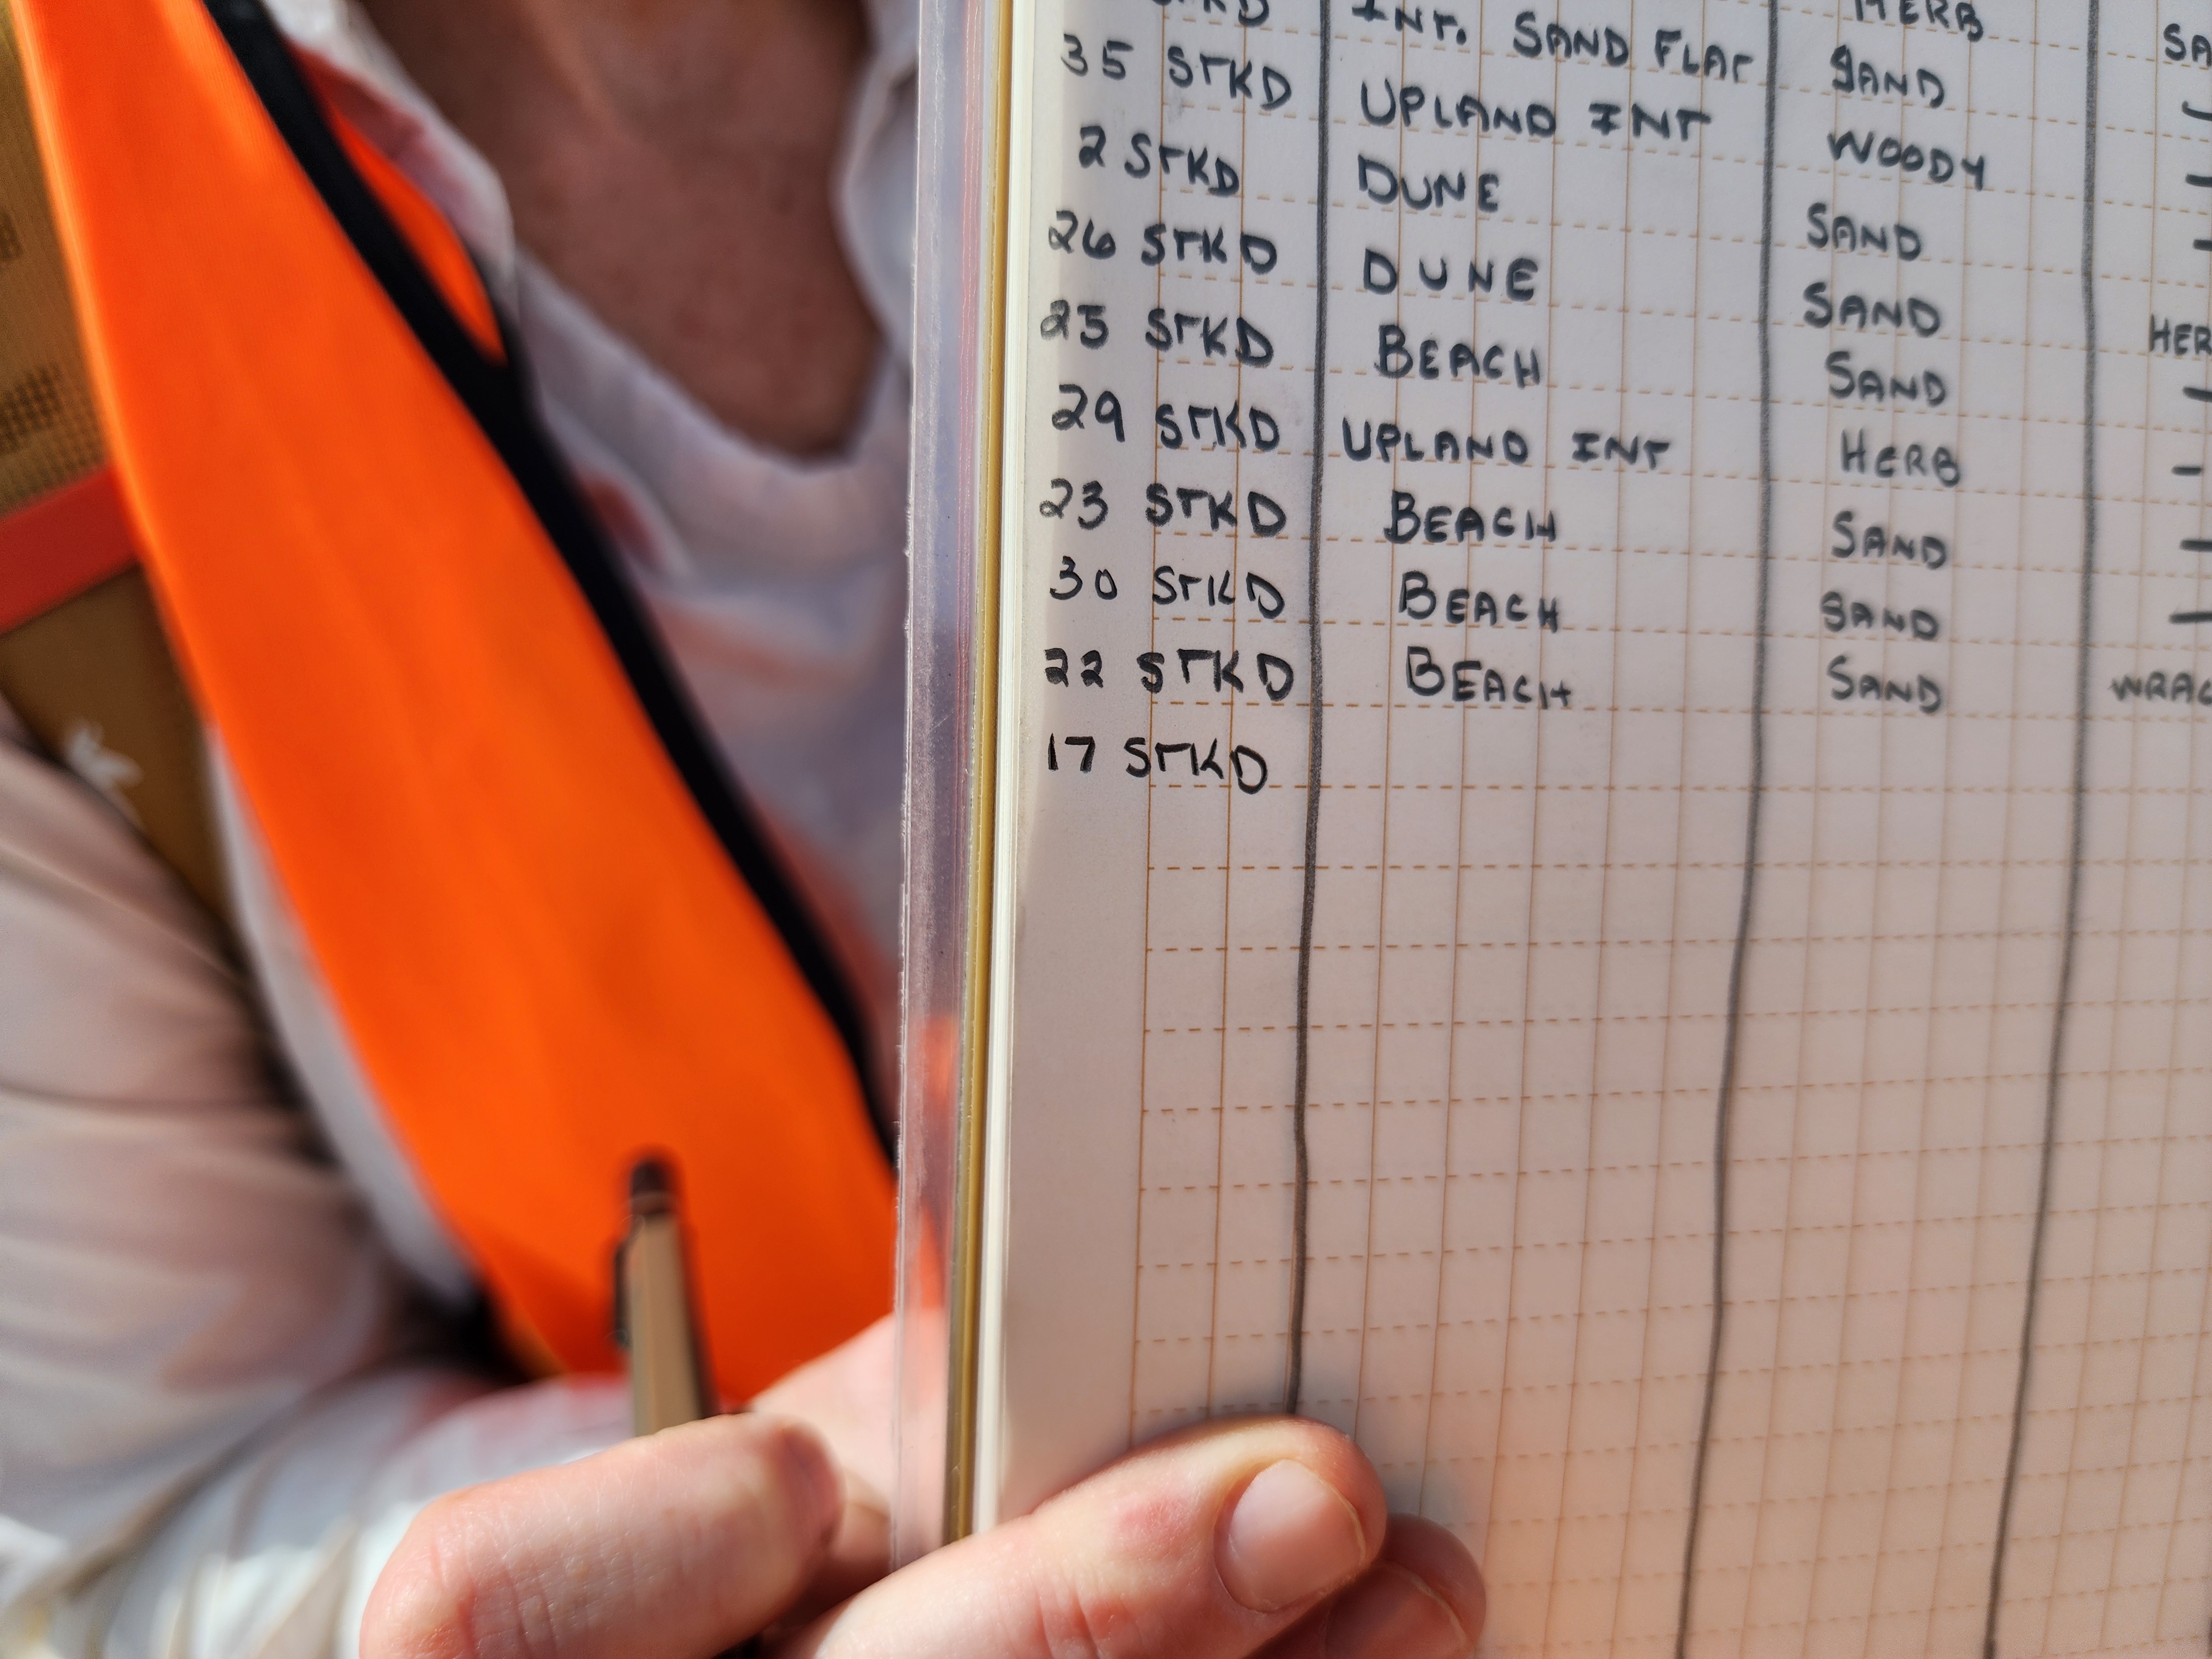 HERB SA
STKD INT. SAND FLAT SAND -
35 STKD UPLAND INT WOODY -
2 STKD DUNE SAND -
26 STKD DUNE SAND HER
25 STKD BEACH SAND -
29 STKD UPLAND INT HERB -
23 STKD BEACH SAND -
30 STKD BEACH SAND -
22 STKD BEACH SAND WRAC
17 STKD